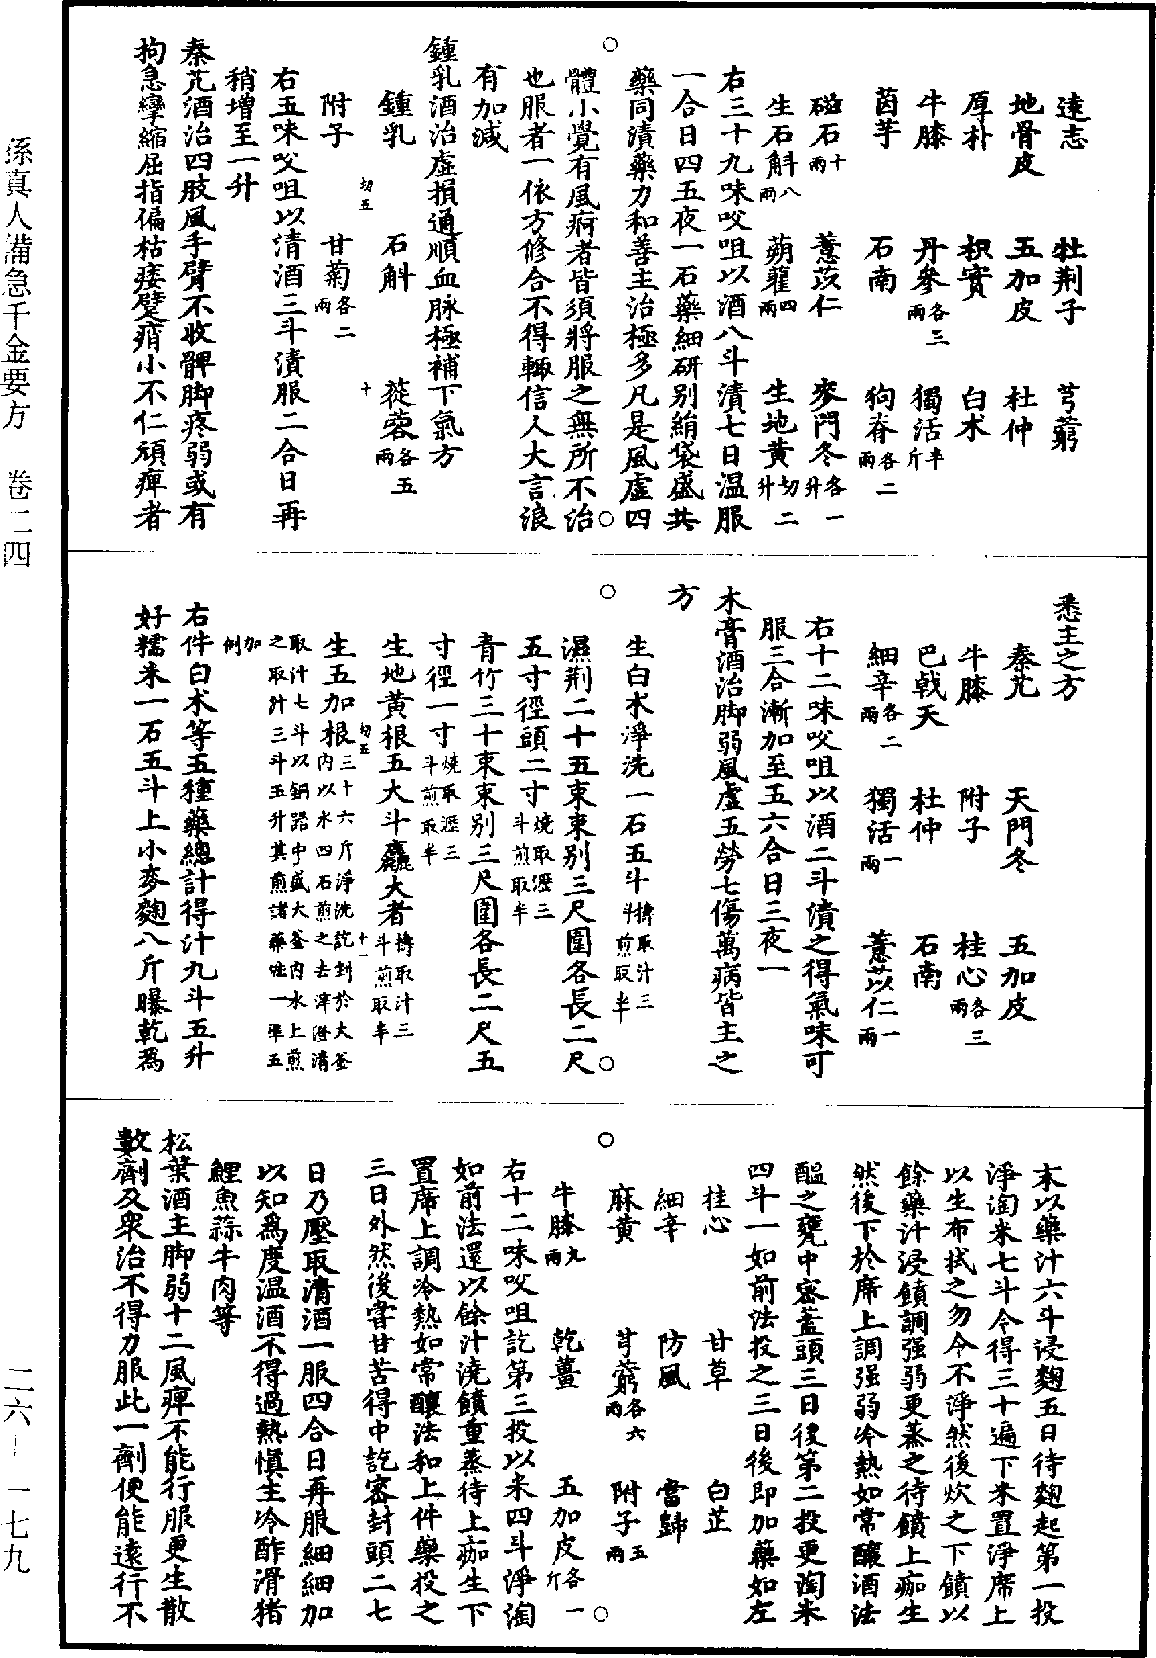 孫真人備急千金要方　卷二四
二六－一七九
遠志　牡荆子　芎藭
地骨皮　五加皮　杜仲
厚朴　枳實　白术
牛膝　丹參各三兩　獨活半斤
茵芋　石南　狗脊各二兩
磁石十兩　薏苡仁　麥門冬各一升
生石斛八兩　蒴藋四兩　生地黄切二升
右三十九味㕮咀以酒八斗漬七日温服
一合日四五夜一石藥細研别絹袋盛共
藥同漬藥力和善主治極多凡是風虚四
體小覺有風痾者皆須將服之無所不治
也服者一依方修合不得輙信人大言浪
有加减
鍾乳酒治虚損通順血脉極補下氣方
鍾乳　石斛　蓯蓉各五兩
附子　甘菊各二兩
右五味㕮咀以清酒三斗漬服二合日再
稍增至一升
秦艽酒治四肢風手臂不收髀脚疼弱或有
拘急攣縮屈指偏枯痿躄痟小不仁頑痺者
悉主之方
秦艽　天門冬　五加皮
牛膝　附子　桂心各三兩
巴戟天　杜仲　石南
細辛各二兩　獨活一兩　薏苡仁一兩
右十二味㕮咀以酒二斗漬之得氣味可
服三合漸加至五六合日三夜一
术膏酒治脚弱風虚五勞七傷萬病皆主之
方
生白术淨洗一石五斗擣取汁三斗煎取半
濕荆二十五束束别三尺圍各長二尺
五寸徑頭二寸燒取瀝三斗煎取半
青竹三十束束别三尺圍各長二尺五
寸徑一寸燒取瀝三斗煎取半
生地黄根五大斗麤大者擣取汁三斗煎取半
生五加根三十六斤淨洗訖剉於大釜内以水四石煎之去滓澄清
取汁七斗以銅器中盛大釜内水上煎之取汁三斗五升其煎諸藥唯一凖五
加例
右件白术等五種藥總計得汁九斗五升
好糯米一石五斗上小麥麴八斤曝乾爲
末以藥汁六斗浸麴五日待麴起第一投
淨淘米七斗令得三十遍下米置淨席上
以生布拭之勿令不淨然後炊之下饙以
餘藥汁浸饙調强弱更蒸之待饙上痂生
然後下於席上調强弱冷熱如常釀酒法
醖之甕中密蓋頭三日後第二投更淘米
四斗一如前法投之三日後即加藥如左
桂心　甘草　白芷
細辛　防風　當歸
麻黄　芎藭各六兩　附子五兩
牛膝九兩　乾薑　五加皮各一斤
右十二味㕮咀訖第三投以米四斗淨淘
如前法還以餘汁澆饙重蒸待上痂生下
置席上調冷熱如常釀法和上件藥投之
三日外然後甞甘苦得中訖密封頭二七
日乃壓取清酒一服四合日再服細細加
以知爲度温酒不得過熱慎生冷酢滑猪
鯉魚蒜牛肉等
松葉酒主脚弱十二風痺不能行服更生散
數劑及衆治不得力服此一劑便能遠行不